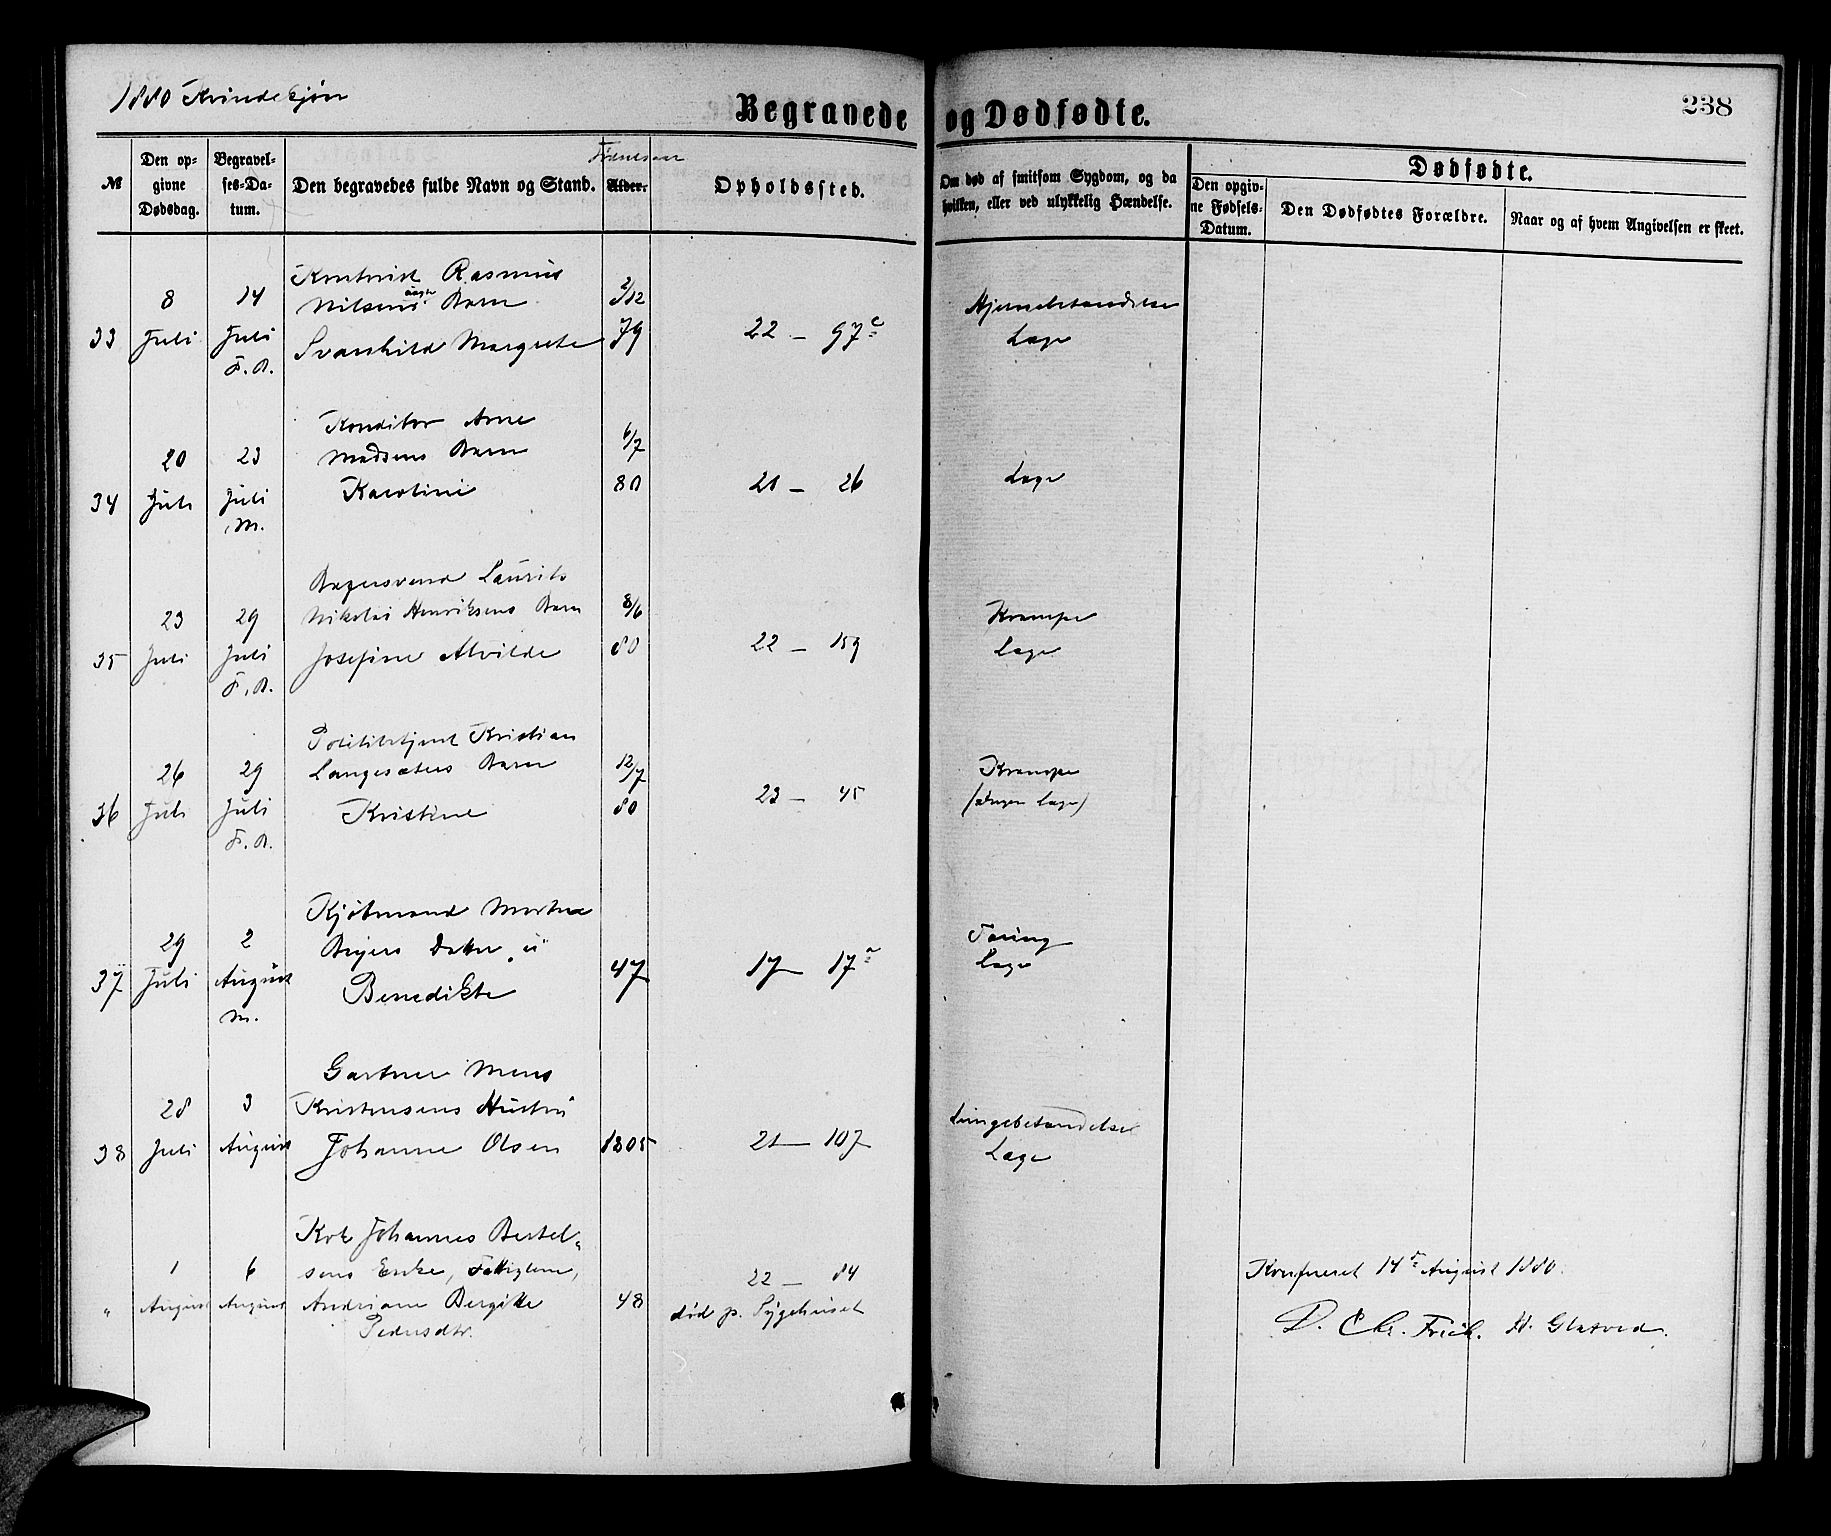 1880 Kvindekjøn
Begravede og Dødfødte.
238
№
Den opgivne Dødsdag.
Begravelses-Datum.
Den begravedes fulde Navn og Stand.
Fødselsaar
Alder.
Opholdssted.
Om død af smitsom Sygdom, og da hvilken, eller ved ulykkelig Hændelse.
Dødfødte.
Den opgivne Fødsels-Datum.
Den Dødfødtes Forældre.
Naar og af hvem Angivelsen er skeet.
33
8 Juli
14 Juli F. B.
Rasmus
Nilsens ægte Barn
Svanhild Margrete
2/12 79
22 — 97 c
Hjernebetændelse
Læge
34
20 Juli
23 Juli M.
Konditor Arne
Madsens Barn
Karoline
6/7 80
21 — 26
Læge
35
23 Juli
29 Juli F. B.
Bagersvend Laurits
Nikolai Henriksens Barn
Josefine Alvilde
8/6 80
22 — 159
Krampe
Læge
36
26 Juli
29 Juli F. B.
Politibetjent Kristian
Langesæters Barn
Kristine
12/7 80
23 — 45
Krampe
(Ingen Læge)
37
29 Juli
2 August M.
Kjøbmand
Beyers Datter u
Benedikte
47
17 — 17 a
Tæring
Læge
38
28 Juli
3 August
Gartner Mons
Kristensens Hustru
Johanne Olsen
1805
21 — 107
Lungebetændelse
Læge
"
1 August
6 August
Johannes Bertel-
sens Enke, Fattiglem,
Andriane Bergitte
Pedersdtr.
48
22 — 84
død p. Sygehuset
Konfereret 14de August 1880.
D. Chr. Frich. H. Glatved.